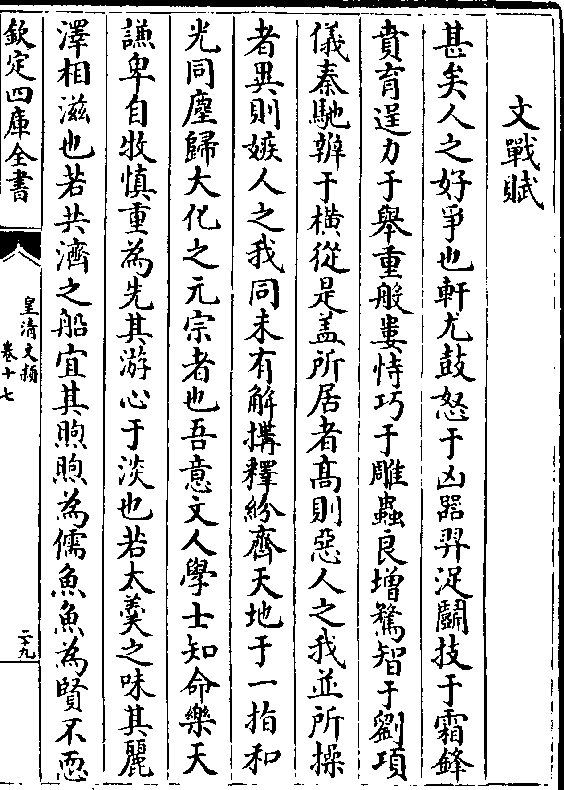 文戰賦
甚矣人之好爭也軒尤鼓怒于凶器羿浞鬬技于霜鋒
賁育逞力于舉重般婁恃巧于雕蟲良增騖智于劉項
儀秦馳辯于橫從是盖所居者髙則惡人之我並所操
者異則嫉人之我同未有解搆釋紛齊天地于一指和
光同塵歸大化之元宗者也吾意文人學士知命樂天
謙卑自牧慎重為先其游心于淡也若太羮之味其麗
澤相滋也若共濟之船宜其煦煦為儒魚魚為賢不惡
欽定四庫全書
皇清文頴
卷十七
二十九